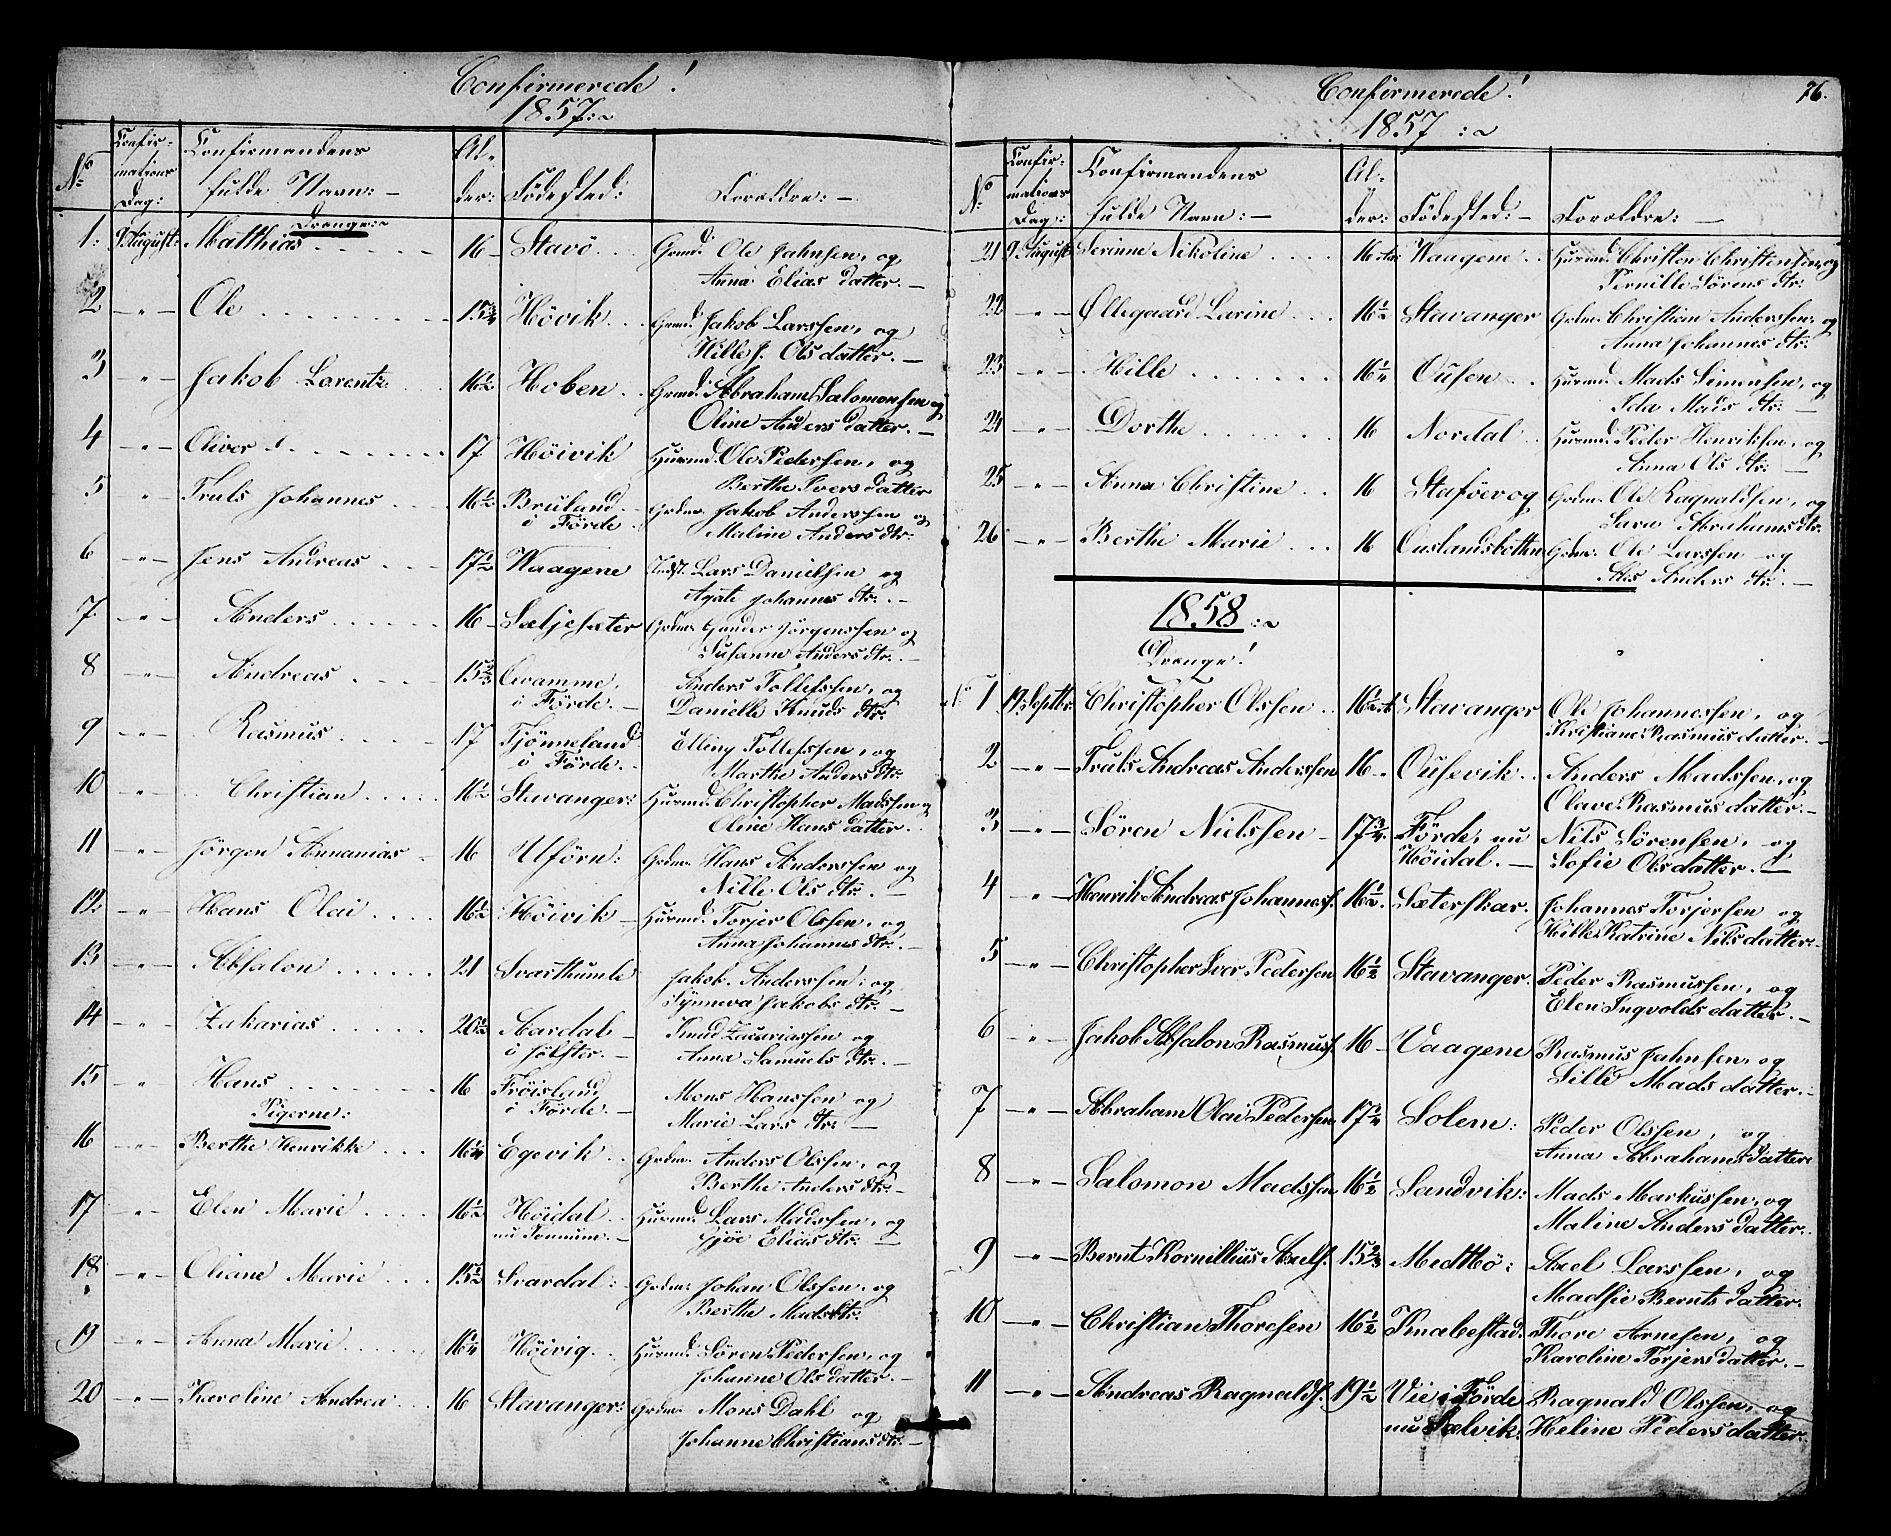 Confirmerede!
1857:~
No
Confir-
mations
Dag:
Confirmandens
fulde Navn:-
Al-
der:
Födested:
Foræeldre:-
Drenge:~
1: 9 August: Matthias 16 Stavö Grmd: Ole Jahnsen, og
Anna Elias datter.-
2 -"- Ole 15 3/4 Hövik Grmd: Jakob Larssen, og
Hille J. Olsdatter.-
3 -"- Jakob Lorentz 16 1/2 Hoben Grmd: Abraham Salomonsen og
Oline Anders datter.-
4 -"- Oliver 17 Höivik Husmd. Ole Pedersen, og
Berthe Ivers datter
5 " Truls Johannes 16 1/2 Bruland Grdm. Jakob Anderssen og
i Förde. Maline Anders dtr:
6 -"- Jens Andreas 17 1/2 Waagene Indst. Lars Danielsen og
Agate Johannes dtr:-
7 -"- Anders 16 Sæljesæter Grdm. Gunder Jörgenssen og
Susanne Anders dtr.-
8 -"- Andreas 15 2/3 Qvamme, Anders Tollefssen, og
i Förde.- Danielle Knuds dtr:
9 -"- Rasmus 17 Tjönneland Elling Tollefssen, og
i Förde.- Marthe Anders dtr:
10 " Christian 16 1/2 Stavanger: Husmd. Christopher Madssen og
Oline Hans datter.
11 -"- Jörgen Annanias 16 Uförn: Grdm. Hans Anderssen og
Nille Ols dtr.-
12 -"- Hans Olai 16 1/2 Höivik Husmd. Torjer Olssen, og
Anna Johannes dtr.-
13 -"- Absalon 21 Svarthumle Jakob. Anderssen: og
Synneva Jakobs dtr.-
14 -"- Zakarias 20 1/2 Aardal Knud Zacariassen og
i Jölster.- Anna Samuels dtr.-
15 " Hans 16 Fröisland Mons Hanssen og
i Förde.- Marie Lars dtr:-
Pigerne:
16 -"- Berthe Henrikke 16 1/4 Egevik Grdm. Anders Olssen, og
Berthe Anders dtr.-
17 -"- Elen Marie 16 1/2 Höidal Husmd. Lars Madssen, og
nu Gjöe Elias dtr:-
18 -"- Oliane Marie 15 1/2 Svardal: Grdm. Johan Olssen, og
Berthe Madsdtr.
19 -"- Anna Marie 16 1/4 Höivig Husmd. Sören Pedersen, og
Johanne Ols datter.-
20 -"- Karoline Andrea 16 Stavanger: Grdm. Mons Dahl og
Johanne Christians dtr.-
Confirmerede!
76.
1857:~
No
Confir-
mations
Dag:
Confirmandens
fulde Navn:-
Al-
der:
Födested:-
Forældre:-
21 9 August Serinne Nikoline 16 Waagene Husmd Christen Christensen, og
Pernille Sörens dtr:
22 -"- Øllegaard Larine 16 1/2 Stavanger Grdm. Christian Anderssen, og
Anna Johannes dtr:
23 -"- Hille 16 1/4 Ousen Husmd. Mads Simensen, og
Ida Mads dtr:-
24 -"- Dorthe 16 Nordal Husmd. Peder Henriksen, og
Anna Ols dtr:-
25 -"- Anna Christine 16 Grdm. Ole Ragnaldsen, og
Sara Abrahams dtr.
26 -"- Berthe Marie 16 Ouslandsbotten Grdm. Ole Larssen og
Anders dtr:-
1858:~
Drenge!
No 1 19 Septbr. Christopher Olssen 16 1/2 Stavanger Ole Johannessen, og
Kristiane Rasmus datter.-
2 -"- Truls Andreas Anderssen 16 Ousevik Anders Madssen, og
Olave Rasmus datter.-
3 -"- Sören Nielssen 17 3/4 Förde, nu Nils Sörensen, og
Höidal.- Sofie Olsdatter.-
4 " Henrik Andreas Johannes. 16 1/2. Sæterskar. Johannes Torjersen og
Hille Katrine Nils datter:-
5 -"- Christopher Iver Pedersen 16 1/2 Stavanger. Peder Rasmussen, og
Elen Ingvolds datter.-
6 " Jakob Absalon Rasmus. 16 Vaagene Rasmus Jahnsen, og
Sille Mads datter.-
7 -"- Abraham Olai Pedersen 17 1/4 Solem: Peder Olssen, og
Anna Abrahams datter
8 -"- Salomon Madssen 16 1/2 Sandvik: Mads Markussen, og
Maline Anders datter.
9 -"- Bernt Kornillius Axels. 15 2/3 Medthö: Axel Larssen, og
Madsie Bernts datter.
10 -"- Christian Thoresen 16 1/2 Knabestad. Thore Arnesen, og
Karoline Torjers datter.-
11 -"- Andreas Ragnalds. 19 1/2 Vie i Förde Ragnald Olssen, og
nu Sælvik. Heline Peders datter.